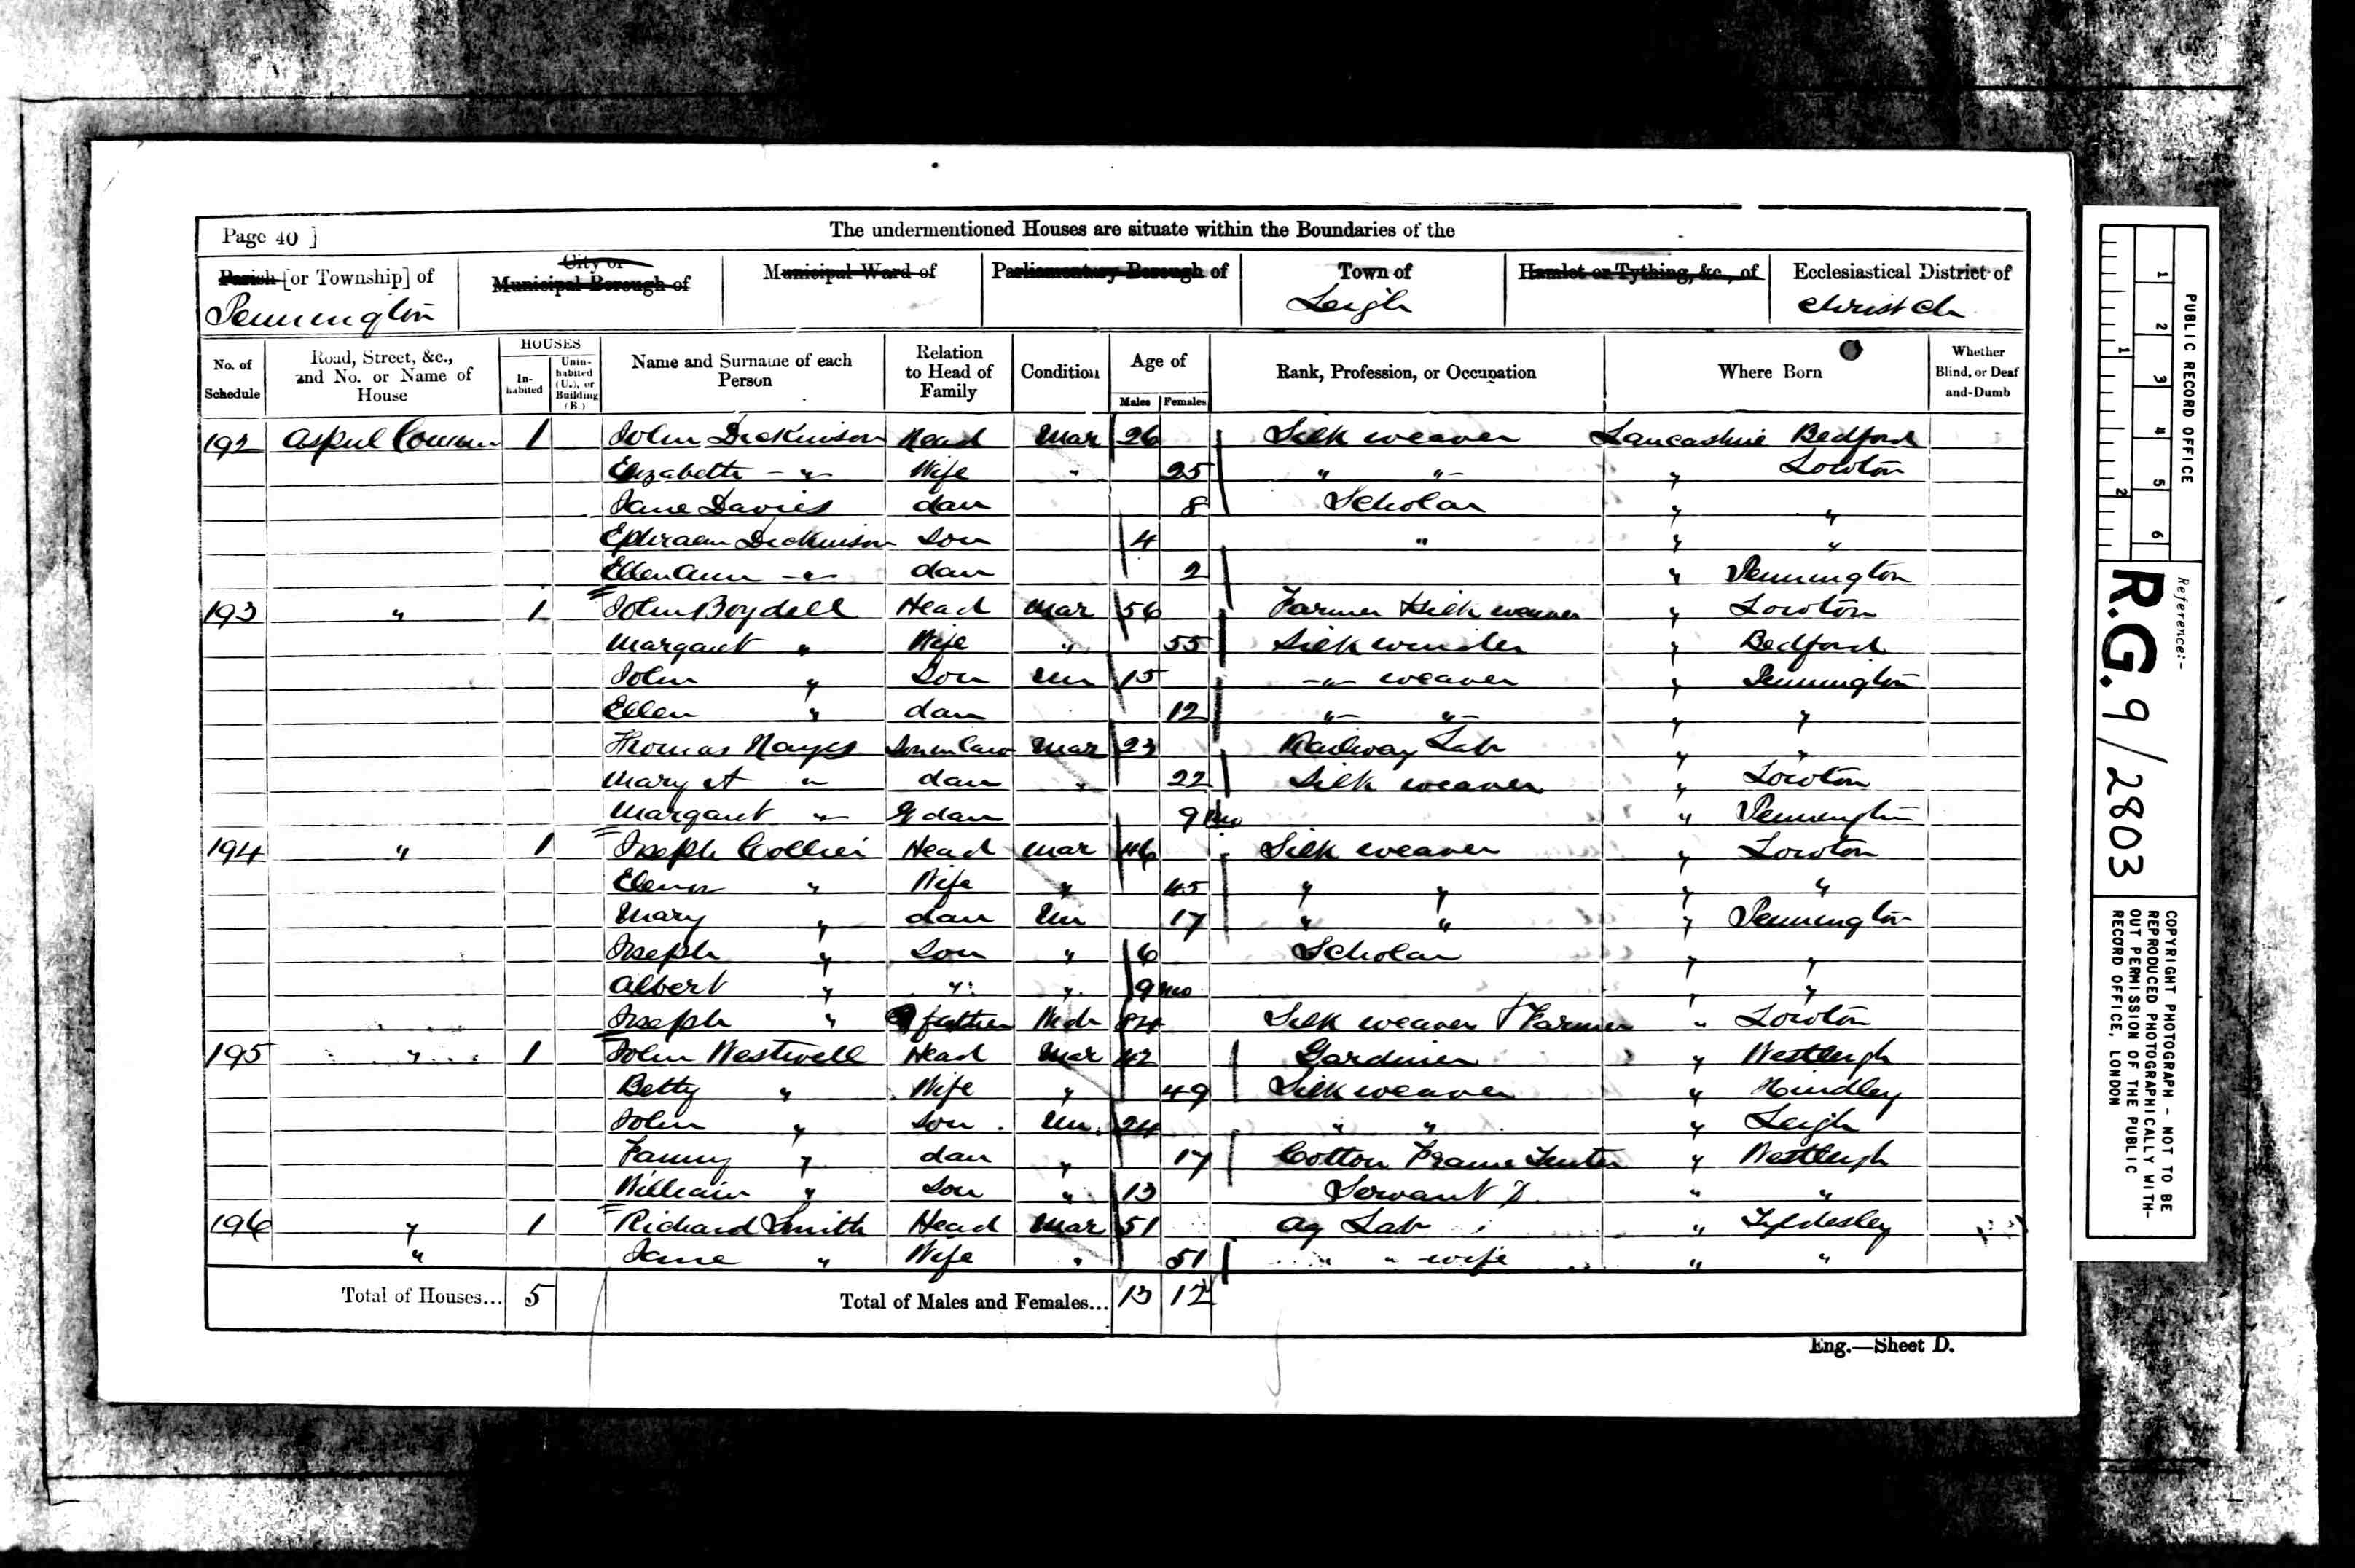 Page 40 ]
The undermentioned Houses are situate within the Boundaries of the
Parish [or Township] of
Pennington
City or
Municipal Borough of
Municipal Ward of
Parliamentary Borough of
Town of
Leigh
Hamlet or Tything, &c., of
Ecclesiastical District of
Christ Ch
No. of Schedule
Road, Street, &c., and No. or Name of House
HOUSES
In-habited
Unin-habited (U.), or Building (B.)
Name and Surname of each Person
Relation to Head of Family
Condition
Age of
Males
Females
Rank, Profession, or Occupation
Where Born
Whether Blind, or Deaf-and-Dumb
192 Aspul Common 1 John Dickinson Head Mar 26 Silk weaver Lancashire Bedford
Elizabeth -"- Wife " 25 " "- " Lowton
Jane Davies dau 8 Scholar " "
Ephraem Dickinson Son 4 " " "
Ellen Ann -"- dau 2 " Pennington
193 " 1 John Boydell Head Mar 56 Farmer & Silk weaver " Lowton
Margaret " Wife " 55 Silk winder " Bedford
John " Son Un 15 -"- weaver " Pennington
Ellen " dau 12 "- "- " "
Thomas Hayes Son in law Mar 23 Railway Lab " "
Mary A " dau " 22 Silk weaver " Lowton
Margaret " G dau 9 mo " Pennington
194 " 1 Joseph Collier Head Mar 46 Silk weaver " Lowton
Elenor " Wife " 45 " " " "
Mary " dau Un 17 " " " Pennington
Joseph " Son " 6 Scholar " "
Albert " " " 9 mo " "
Joseph " father Wdr 84 Silk weaver & Farmer " Lowton
195 " 1 John Westwell Head Mar 42 Gardiner " Westleigh
Betty " Wife " 49 Silk weaver " Hindley
John " Son Un 24 " " " Leigh
Fanny " dau " 17 Cotton Frame Tenter " Westleigh
William " Son " 13 Servant " "
196 " 1 Richard Smith Head Mar 51 Ag Lab " Tyldesley
" Jane " Wife " 51 " " wife " "
Total of Houses... 5
Total of Males and Females... 13 12
Eng.—Sheet D.
PUBLIC RECORD OFFICE
1 2 3 4 5 6
1 2
Reference:-
R.G. 9/2803
COPYRIGHT PHOTOGRAPH - NOT TO BE
REPRODUCED PHOTOGRAPHICALLY WITH-
OUT PERMISSION OF THE PUBLIC
RECORD OFFICE, LONDON